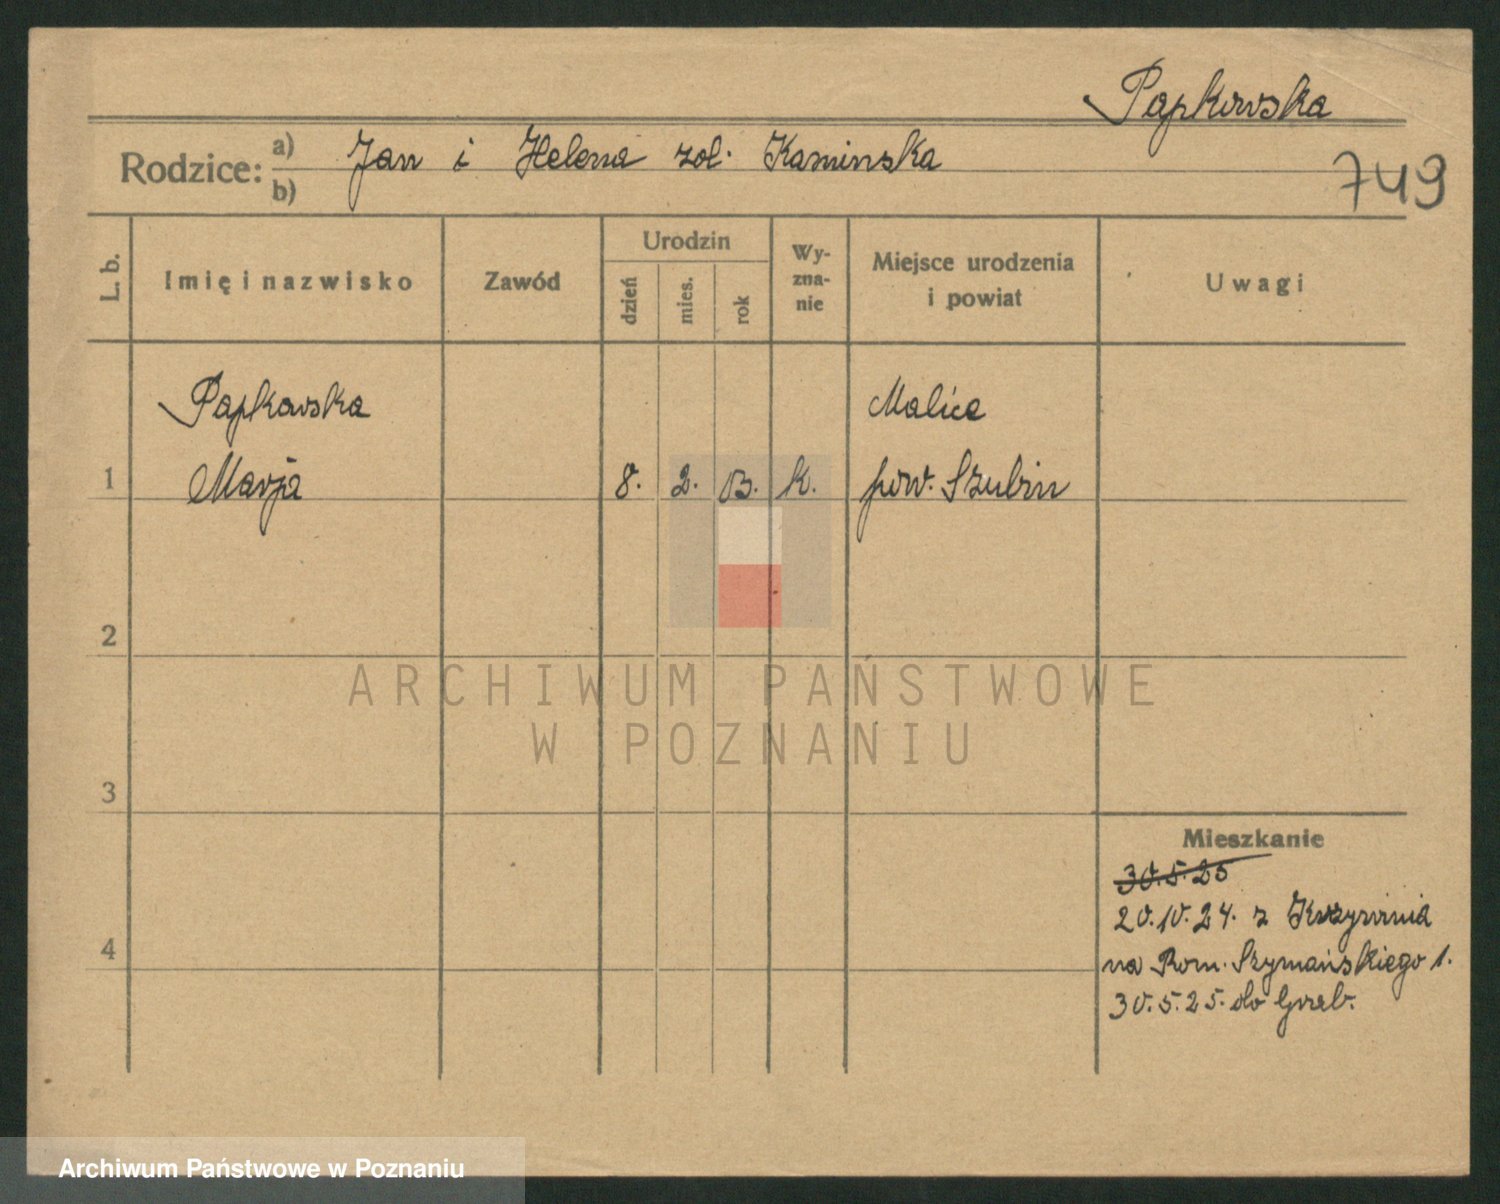 Papkowska
Rodzice: a) Jan i Helena zol. Kaminska
b)
749
L. b. Imię i nazwisko Zawód Urodzin dzień mies. rok Wy-zna-nie Miejsce urodzenia i powiat Uwagi
Papkowska Malice
1 Marja 8. 2. 03. k. pow. Szubin
2
3
4
ARCHIWUM PAŃSTWOWE
W POZNANIU
Mieszkanie
30.5.25
20.10.24. z Krzywinia
na Rom. Szymańskiego 1.
30.5.25. do Grab.
Archiwum Państwowe w Poznaniu